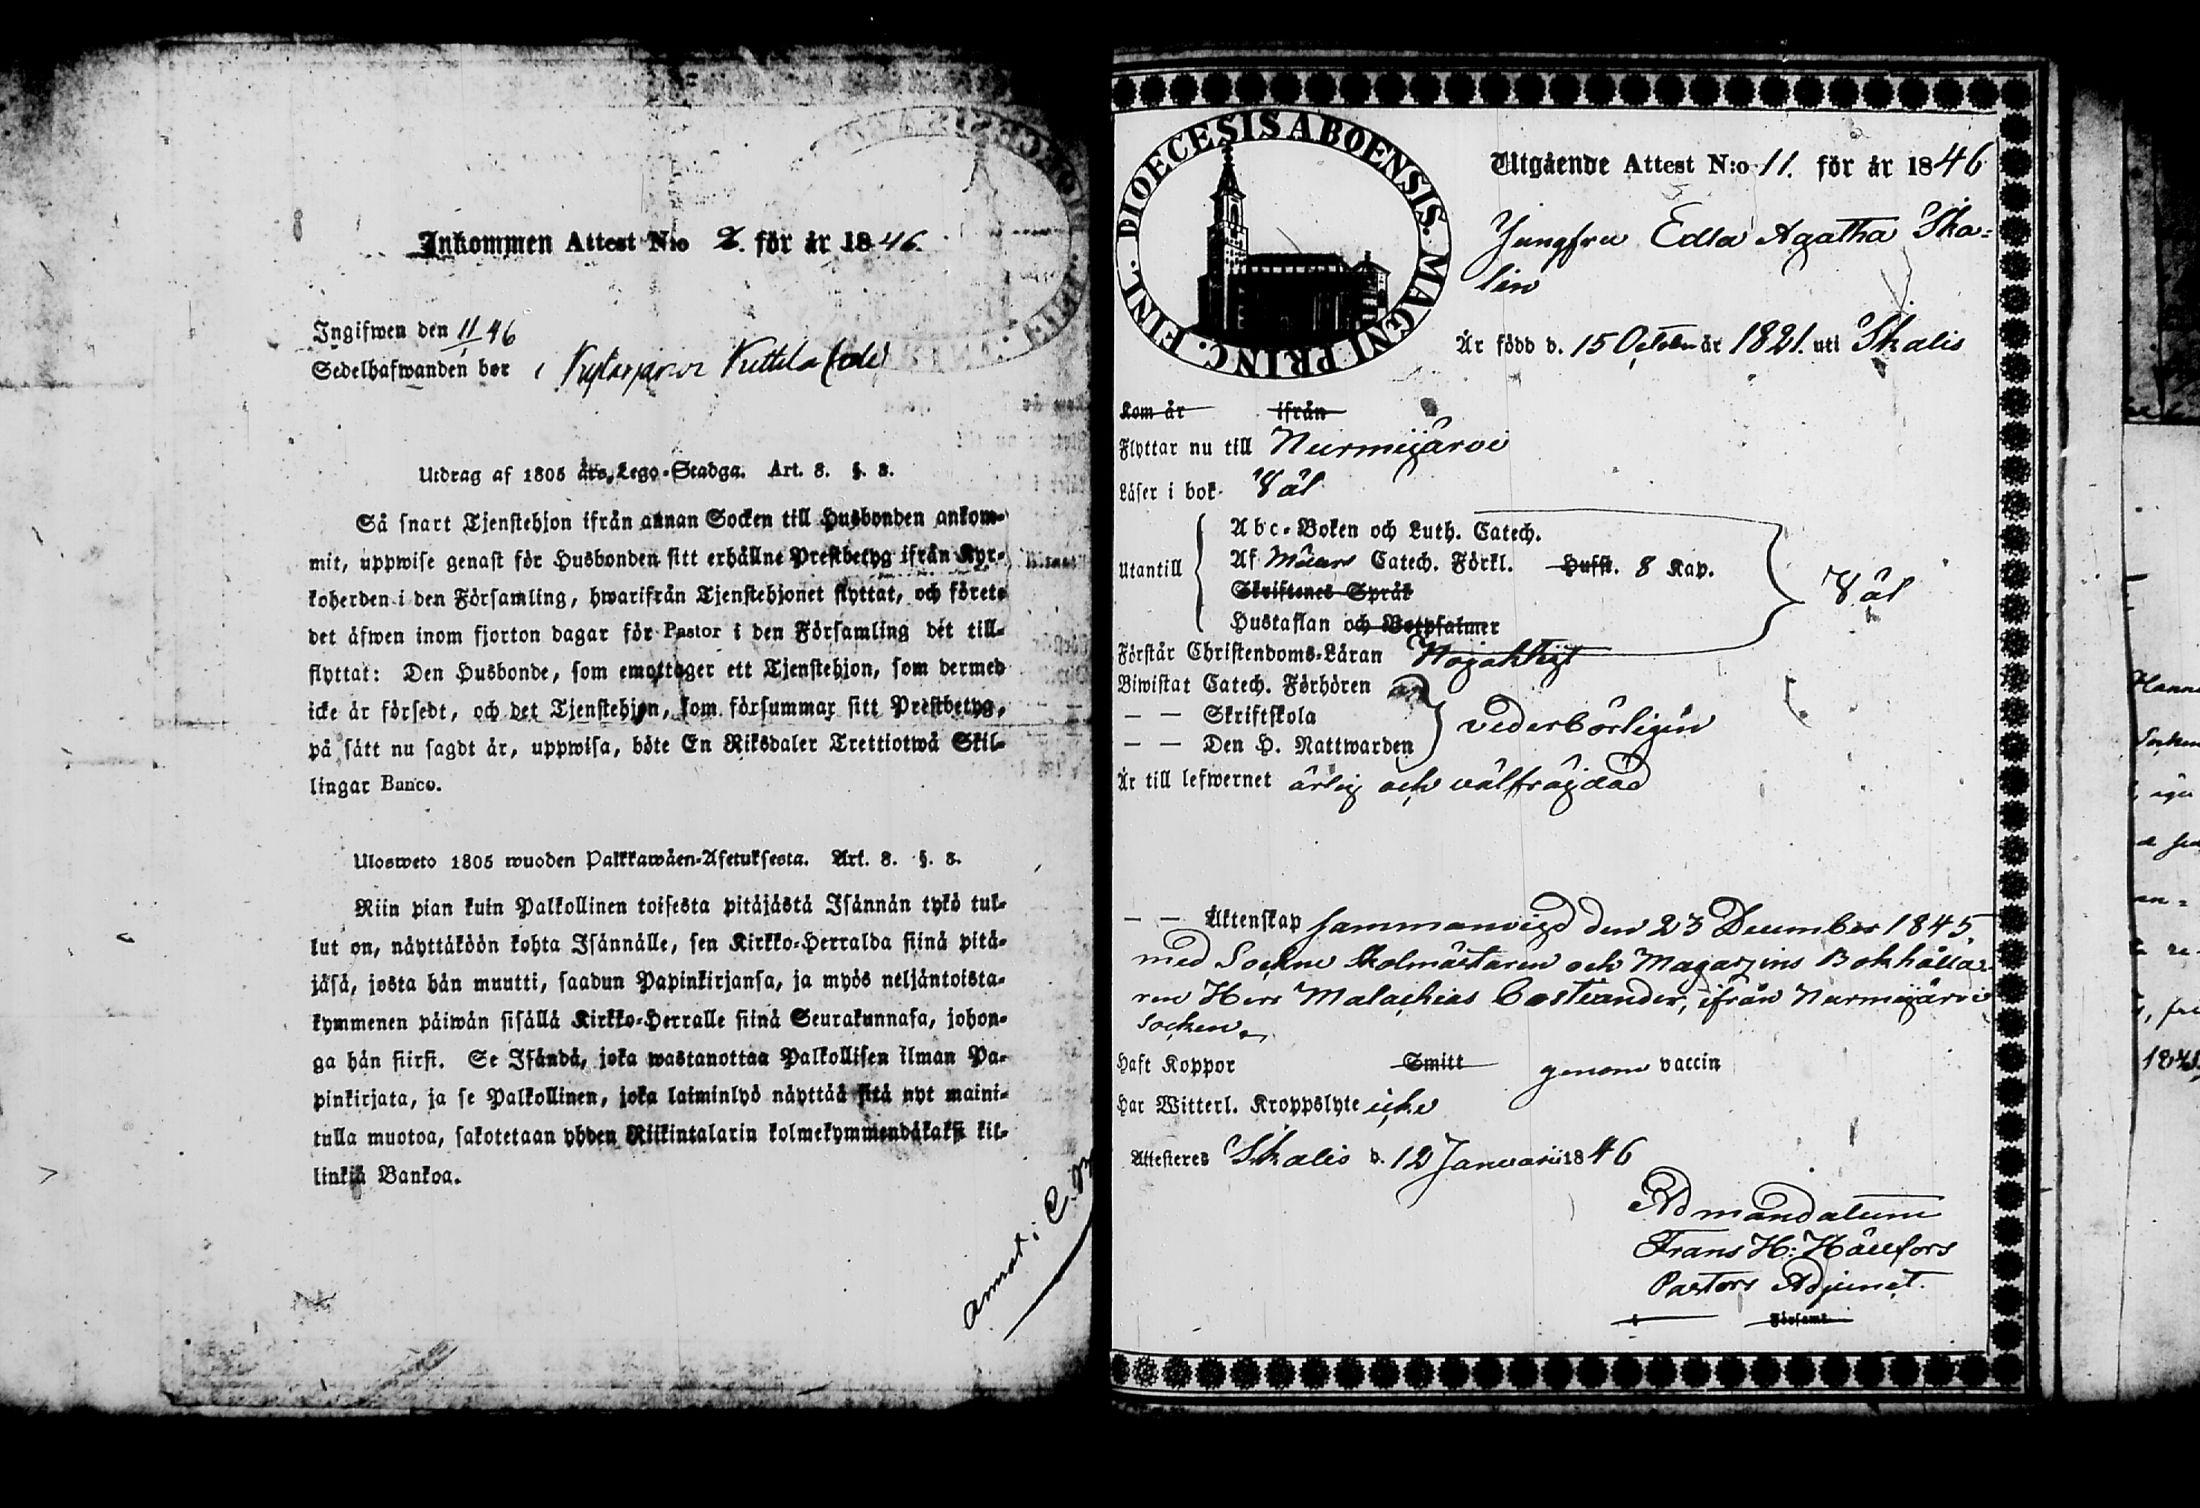 Inkommen Attest N:o 2. för år 1846.
Ingifwen den 11/1 46
Sedelhafwanden bor i
Utdrag af 1805 års Lego-Stadga. Art. 8. §. 8.
Så snart Tjenstehjon ifrån annan Socken till Husbonden ankom-
mit, uppwise genast för Husbonden sitt erhållne Prestbetyg ifrån Kyr-
koherden i den Församling, hwarifrån Tjenstehjonet flyttat, och förete
det äfwen inom fjorton dagar för Pastor i den Församling det till-
flyttat: Den Husbonde, som emottager ett Tjenstehjon, som dermed
icke är försedt, och det Tjenstehjon, som försummar sitt Prestbetyg,
på sätt nu sagdt är, uppwisa, böte En Riksdaler Trettiotwå Skil-
lingar Banco.
Ulosweto 1805 wuoden Palkkawäen-Asetuksesta. Art. 8. §. 8.
Niin pian kuin Palkollinen toisesta pitäjästä Isännän tykö tul-
lut on, näyttäköön kohta Isännälle, sen Kirkko-Herralda siinä pitä-
jäsä, josta hän muutti, saadun Papinkirjansa, ja myös neljäntoista-
kymmenen päiwän sisällä Kirkko-Herralle siinä Seurakunnasa, johon-
ga hän siirsi. Se Isändä, joka wastanottaa Palkollisen ilman Pa-
pinkirjata, ja se Palkollinen, joka laiminlyö näyttää sitä nyt maini-
tulla muotoa, sakotetaan yhden Riikintalarin kolmekymmendäkaksi kil-
linkiä Bankoa.
annot: C.
DIOECESIS ABOENSIS. MAGNI PRINC. FINL.
Utgående Attest N:o 11. för år 1846
Jungfru Edla Agatha Ska-
lin
Är född d. 15 October år 1821. uti Skalis
Kom år ifrån
Flyttar nu till Nurmijärvi
Läser i bok Väl
Utantill
Abc-Boken och Luth. Catech.
Af Möllers Catech. Förkl. Hufst. 8 Kap.
Skriftenes Språk
Hustaflan och Botpsalmer
Väl
Förstår Christendoms-Läran Nöjaktigt
Biwistat Catech. Förhören
— — Skriftskola
— — Den H. Nattwarden
vederbörligen
Är till lefwernet ärlig och välfrägdad
— — Äktenskap sammanvigd den 23 December 1845
med Sockne Skolmästaren och Magazins Bokhålla-
ren Herr Malachias Costiander, ifrån Nurmijärvi
socken.
Haft Koppor Smitt genom vaccin
Har Witterl. Kroppslyte icke
Attesteres Skalis d. 12 Januarii 1846
Ad mandatum
Frans H: Hällfors
Pastors Adjunct.
i Församl.